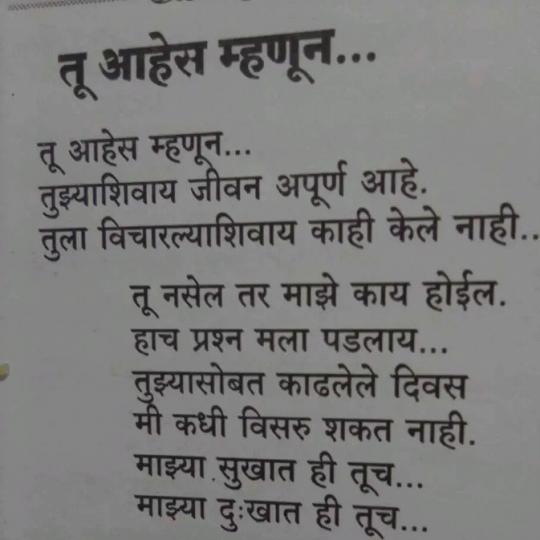 तू आहेस म्हणून...
तू आहेस म्हणून...
तुझ्याशिवाय जीवन अपूर्ण आहे.
तुला विचारल्याशिवाय काही केले नाही..
तू नसेल तर माझे काय होईल.
हाच प्रश्न मला पडलाय...
तुझ्यासोबत काढलेले दिवस
मी कधी विसरु शकत नाही.
माझ्या सुखात ही तूच...
माझ्या दुःखात ही तूच...